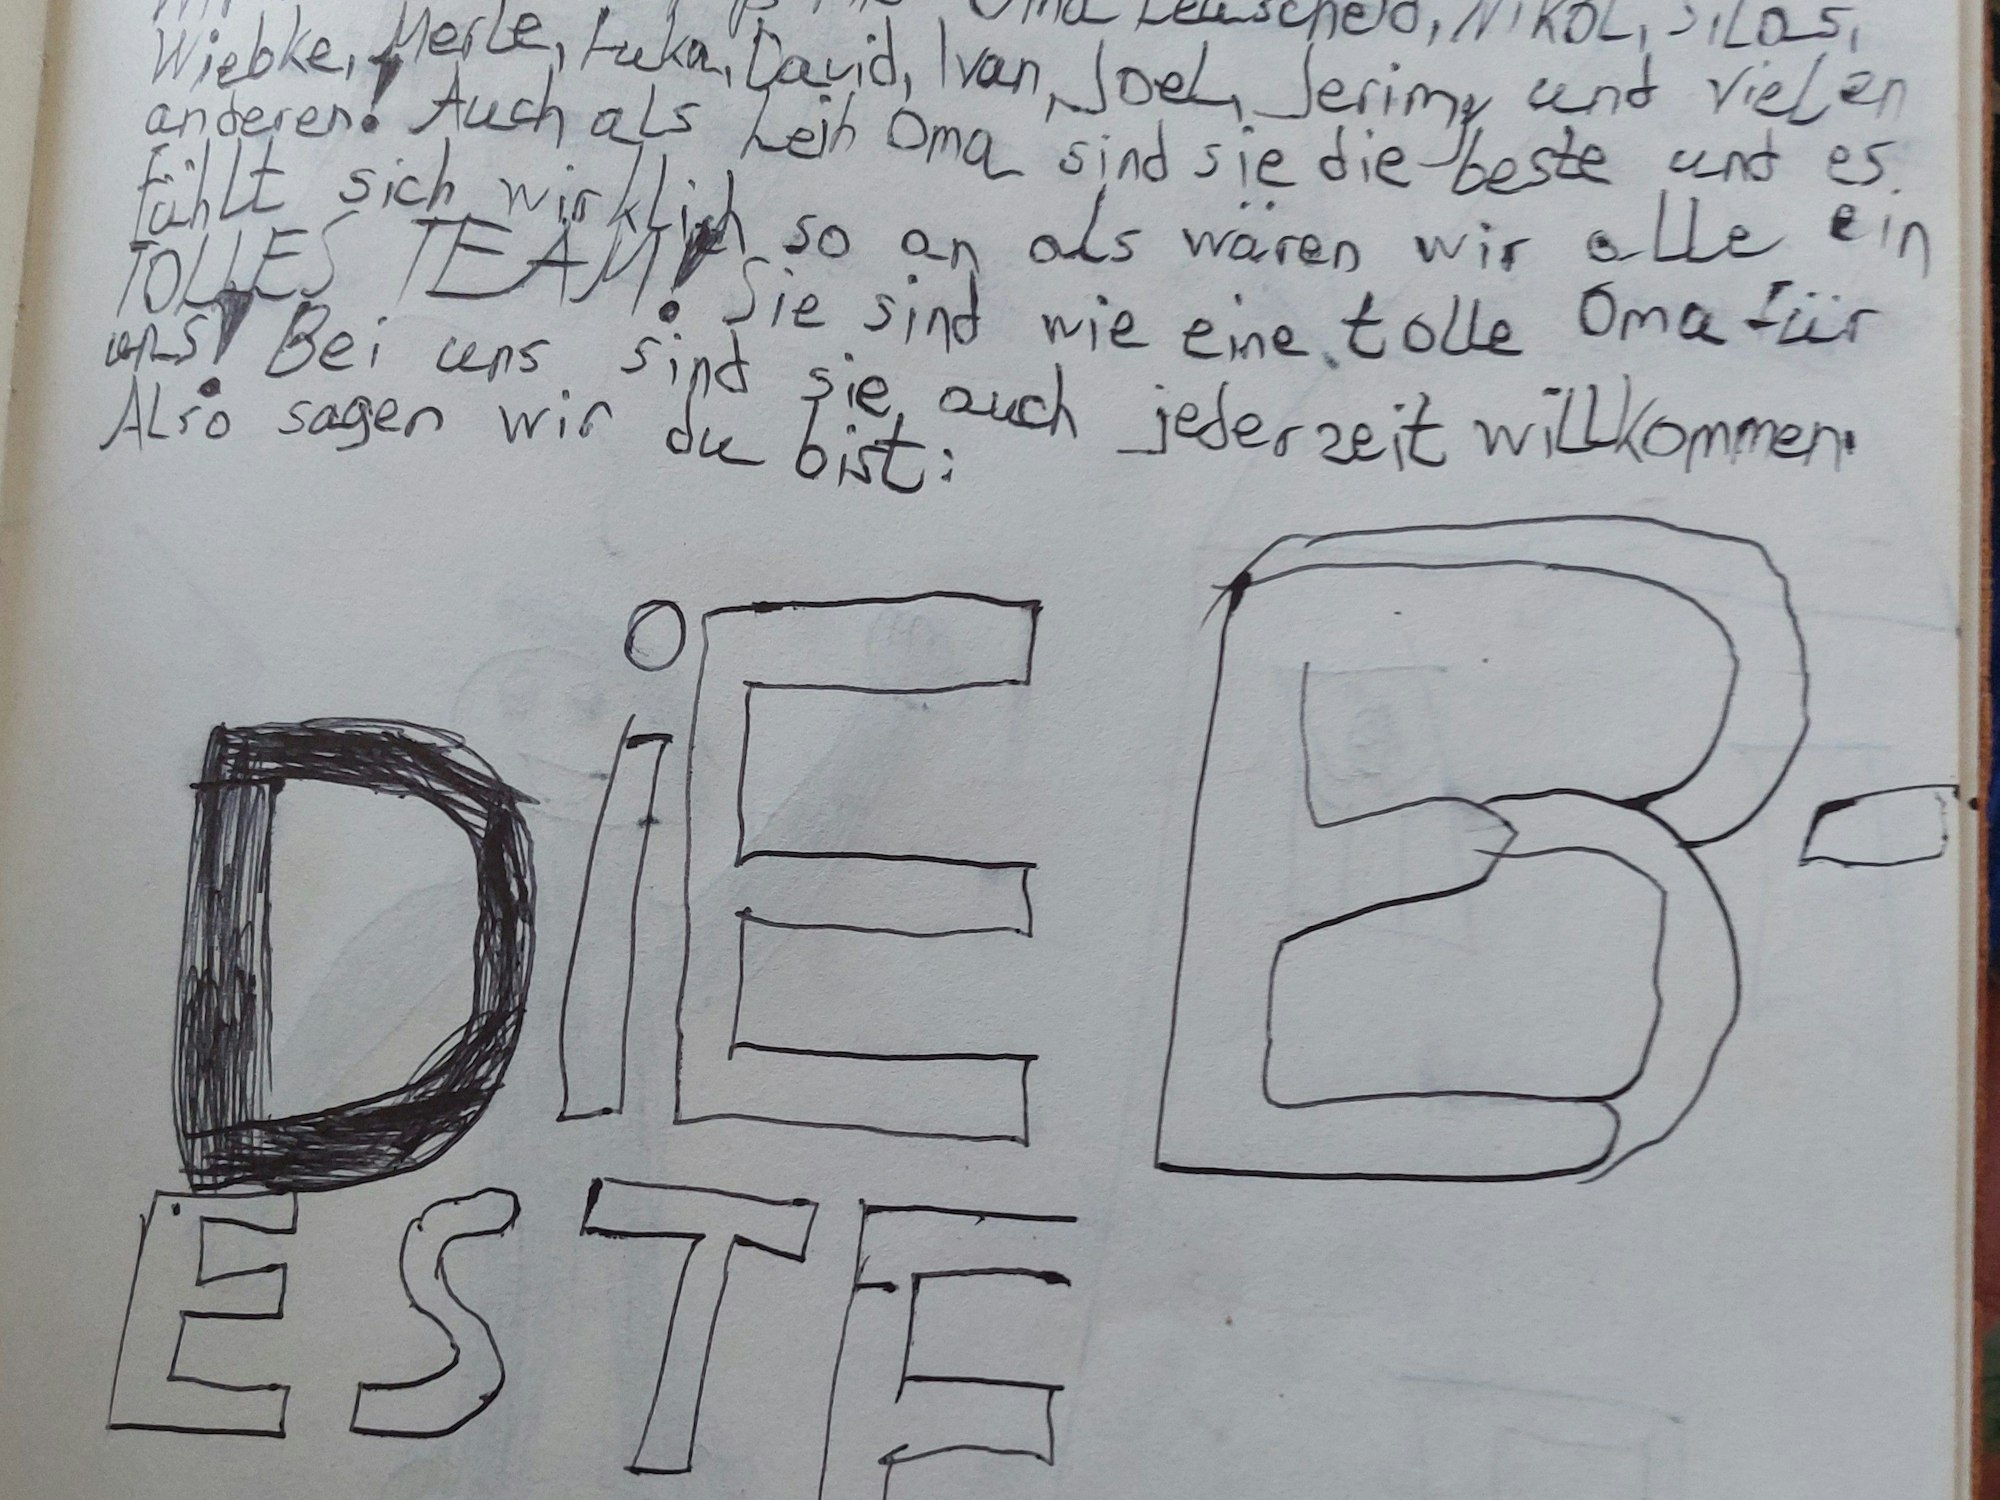 Oma Leuscheid, Nikol, Silas,
Wiebke, Merle, Luka, David, Ivan, Joel, Jerimy und vielen
anderen! Auch als Leih Oma sind sie die beste und es
fühlt sich wirklich so an als wären wir alle ein
TOLLES TEAM! Sie sind wie eine tolle Oma für
uns! Bei uns sind sie auch jederzeit willkommen.
Also sagen wir du bist:
DiE B-
ESTE